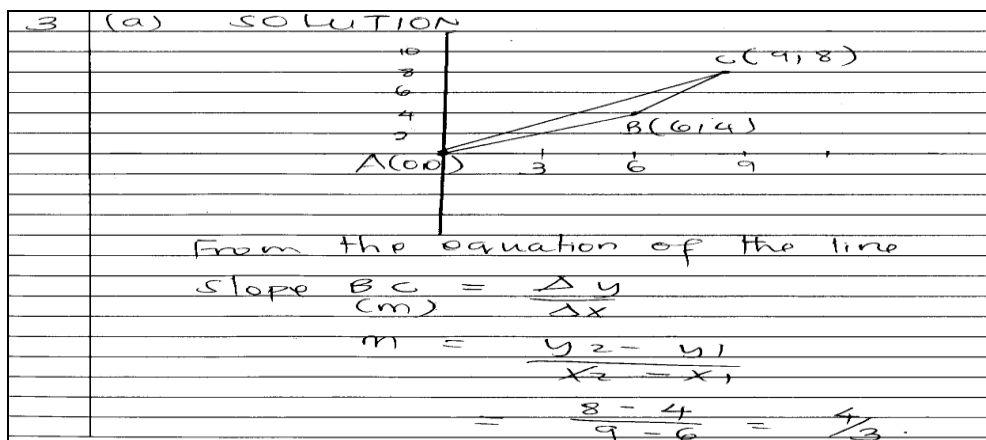 3 (a) SOLUTION
10
8
6
4
2
C(9,8)
B(6,4)
A(0,0) 3 6 9
From the equation of the line
Slope BC = Δy
(m) Δx
m = y2 - y1
x2 - x1
= 8 - 4 = 4/3.
9 - 6